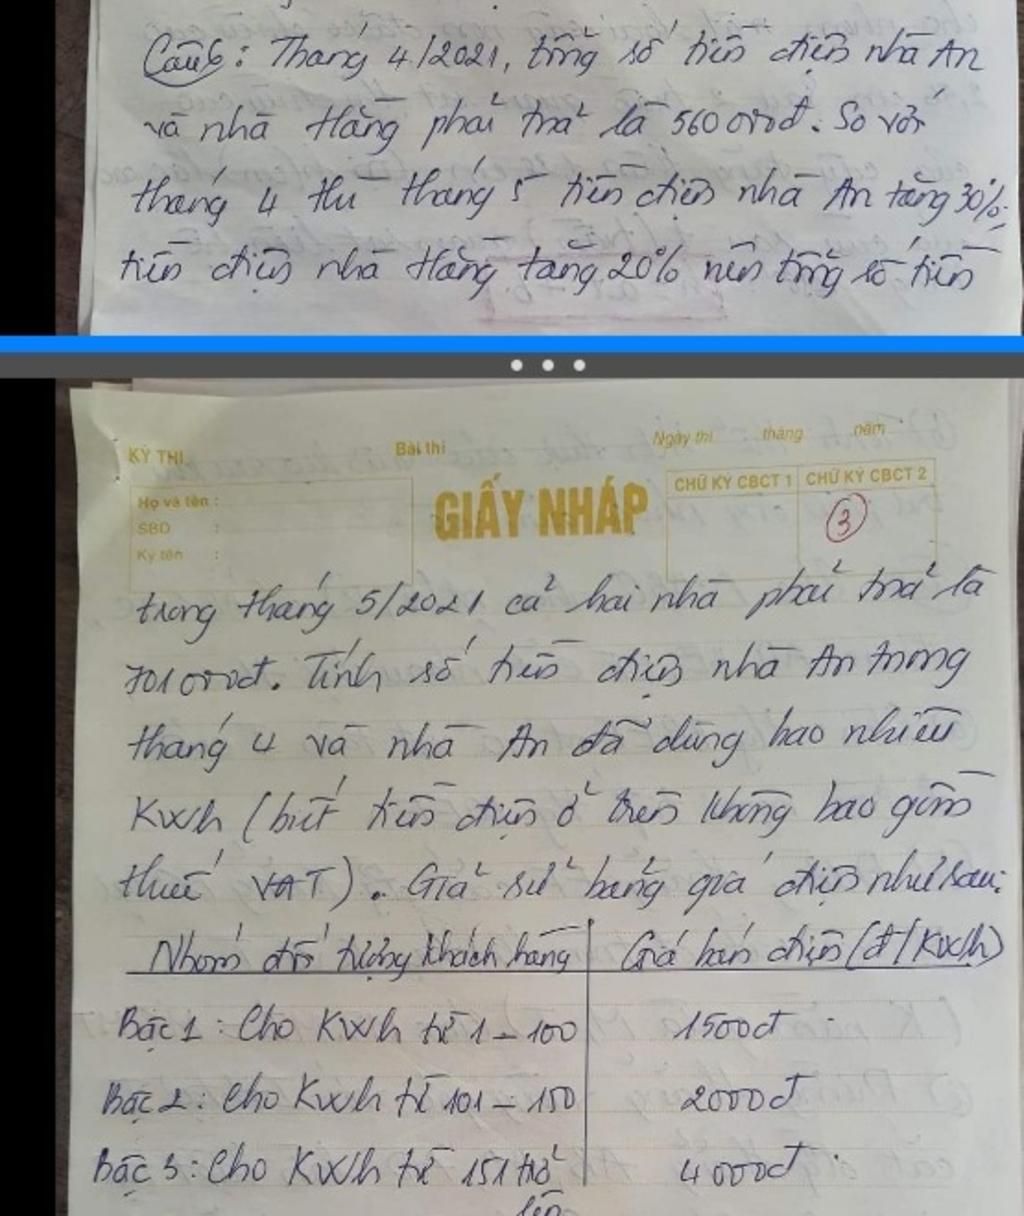 Câu 6: Tháng 4/2021, tổng số tiền điện nhà An
và nhà Hằng phải trả là 560 000đ. So với
tháng 4 thì tháng 5 tiền điện nhà An tăng 30%,
tiền điện nhà Hằng tăng 20% nên tổng số tiền
KỲ THI
Bài thi
Ngày thi tháng năm
Họ và tên :
SBD :
Ký tên :
GIẤY NHÁP
CHỮ KÝ CBCT 1 CHỮ KÝ CBCT 2
3
trong tháng 5/2021 cả hai nhà phải trả là
701 000đ. Tính số tiền điện nhà An trong
tháng 4 và nhà An đã dùng bao nhiêu
Kwh (biết tiền điện ở trên không bao gồm
thuế VAT). Giả sử bảng giá điện như sau:
Nhóm đối tượng khách hàng Giá bán điện (đ/Kwh)
Bậc 1: Cho Kwh từ 1 - 100 1500đ
Bậc 2: Cho Kwh từ 101 - 150 2000đ
Bậc 3: Cho Kwh từ 151 trở 4000đ
lên